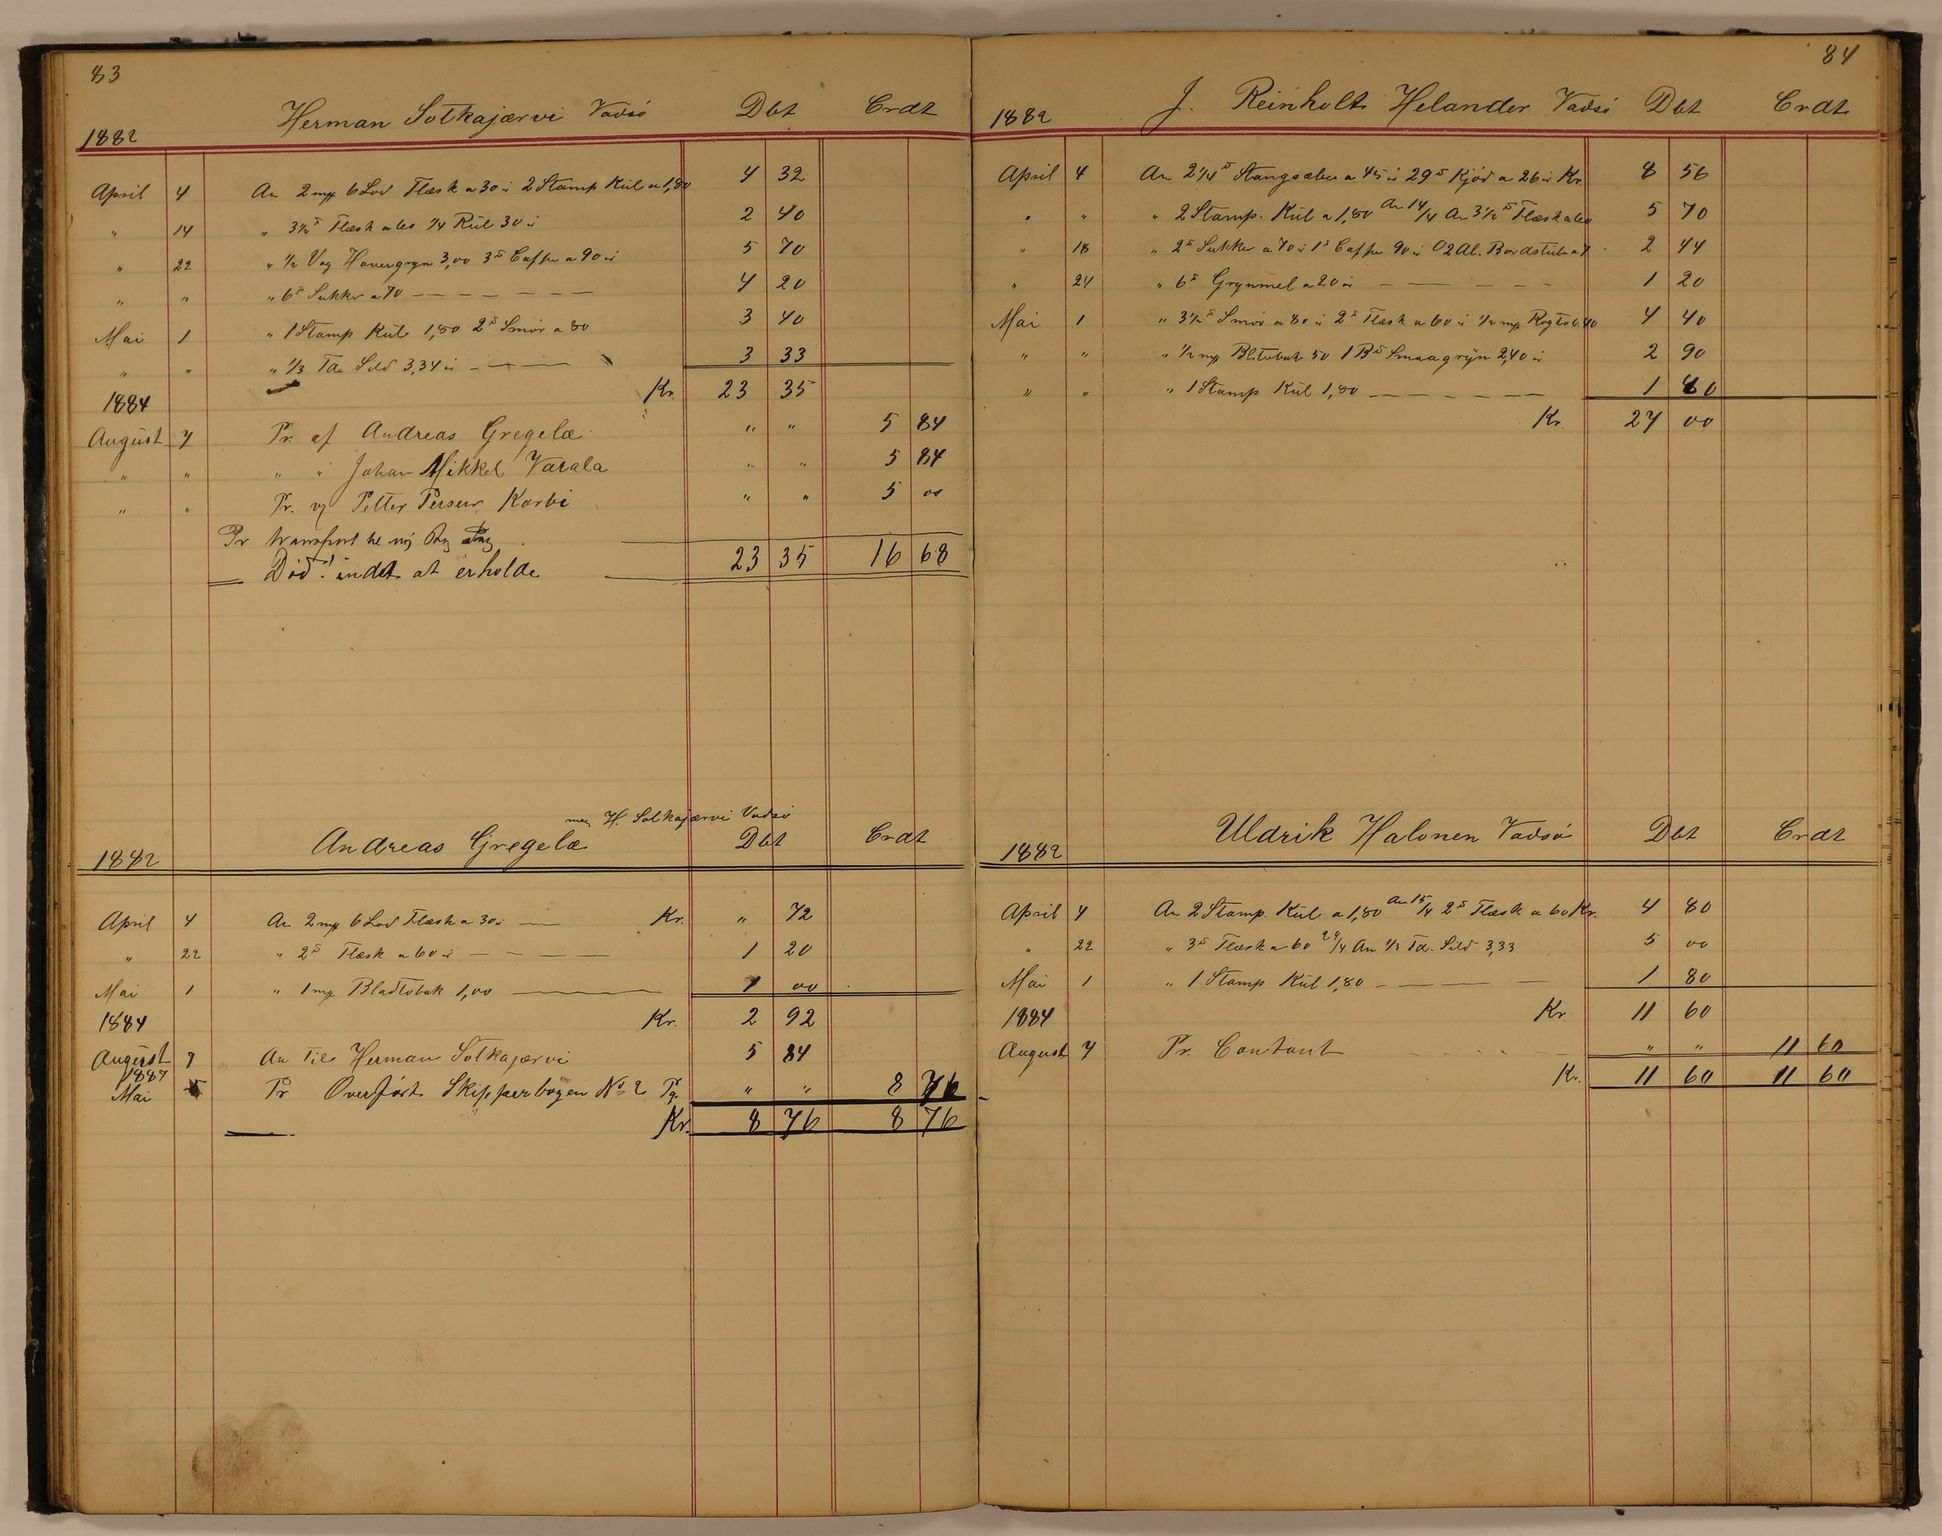 83
Herman Sotkajærvi Vadsö Dbt Crdt
1882
April 4 An 2 mp 6 Lod Flæsk a 30 ö 2 Stamp Kul a 1,80 4 32
" 14 " 3½ Flæsk a 60 ¼ Kul 30 ö 2 40
" 22 " ½ Vog Havergryn 3,00 3 Caffe a 90 ö 5 70
" " " 6 Sukker a 70 4 20
Mai 1 " 1 Stamp Kul 1,80 2 Smör a 80 3 40
" " " ⅓ Td. Sild 3,34 ö 3 33
1884 Kr. 23 35
August 7 Pr. af Andreas Gregelæ " " 5 84
" " " " Johan Mikkel Varala " " 5 84
" " Pr. Petter Persen Korbi " " 5 00
Pr transport
Död! indet at erholde 23 35 16 68
H. Sotkajærvi Vadsö
Andreas Gregelæ Dbt Crdt
1882
April 4 An 2 mp 6 Lod Flæsk a 30 ö Kr. " 72
" 22 " 2 Flæsk a 60 ö 1 20
Mai 1 " 1 mp Bladtobak 1,00 1 00
1884 Kr. 2 92
August 7 An Til Herman Sotkajærvi 5 84
1887
Mai 5 Pr Overfört Skipperbogen No 2 Pg. " " 8 76
Kr. 8 76 8 76
84
J. Reinholt Helander Vadsö Dbt Crdt
1882
April 4 An 2¼ Stangsæbe a 45 ö 29 Kjöd a 26 ö Kr. 8 56
" " " 2 Stamp. Kul a 1,80 An 14/4 An 3½ Flæsk a 60 5 70
" 18 " 2 Sukker a 70 ö 1 Caffe 90 ö 2 Al. 2 44
" 24 " 6 Grynmel a 20 ö 1 20
Mai 1 " 3½ Smör a 80 ö 2 Flæsk a 60 ö ½ mp Rogtob. 40 4 40
" " " ½ mp 50 1 B Smaagryn 2,40 ö 2 90
" " " 1 Stamp Kul 1,80 1 80
Kr. 27 00
Uldrik Halonen Vadsö Dbt Crdt
1882
April 4 An 2 Stamp. Kul a 1,80 An 15/4 2 Flæsk a 60 Kr. 4 80
" 22 " 3 Flæsk a 60 29/4 An ⅓ Td. Sild 3,33 5 00
Mai 1 " 1 Stamp Kul 1,80 1 80
1884 Kr. 11 60
August 7 Pr. Contant " " 11 60
Kr. 11 60 11 60